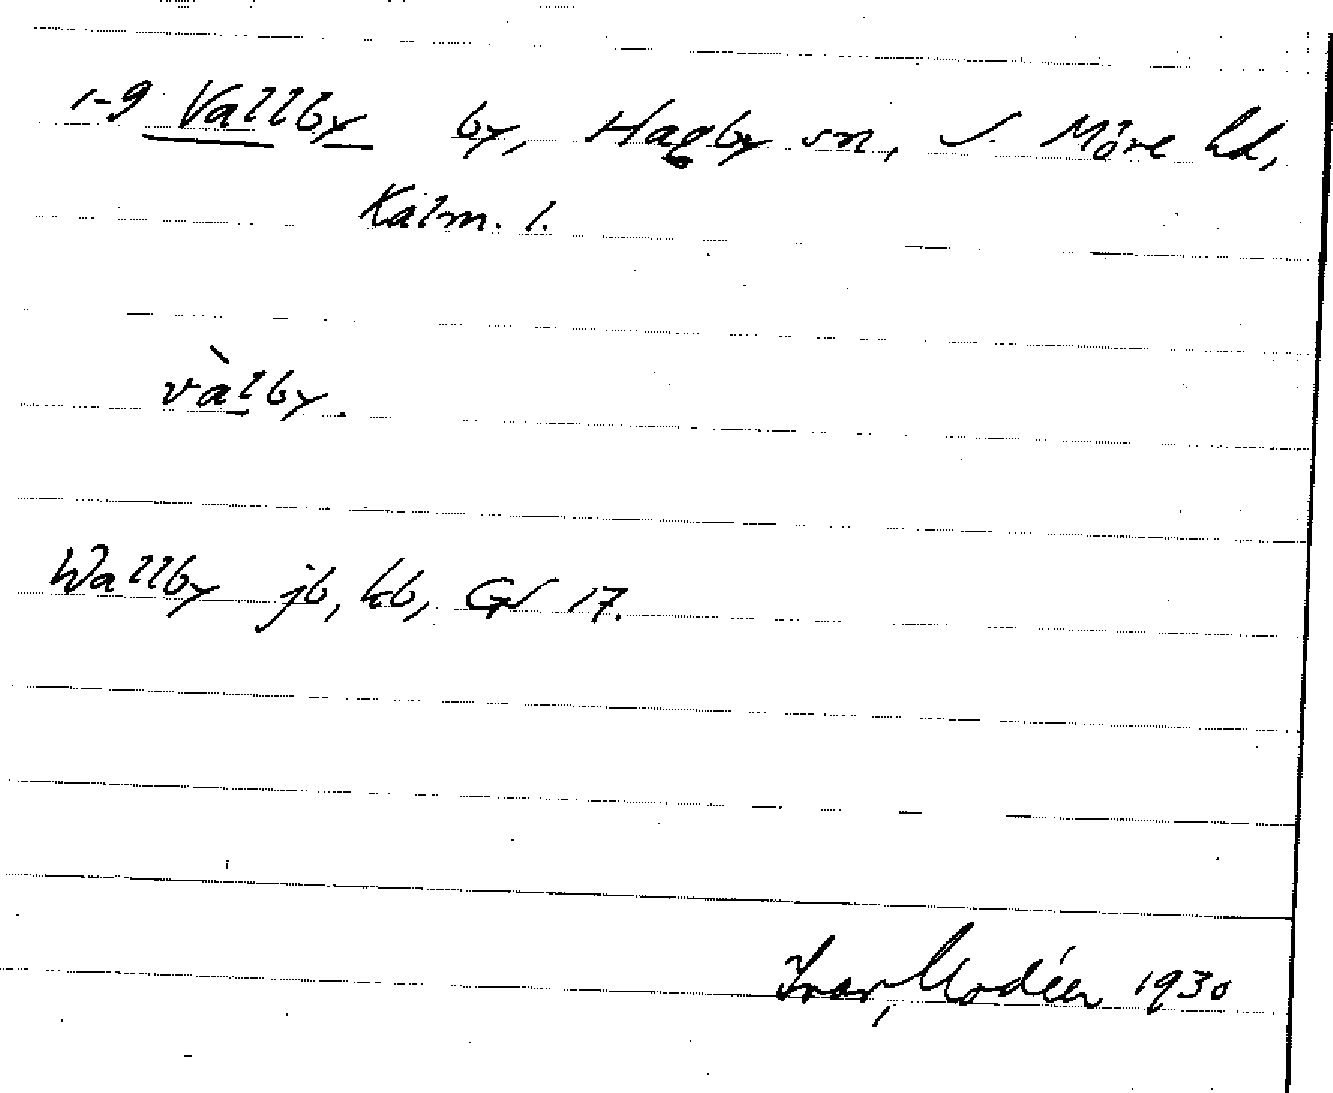 1-9 Vallby by, Hagby sn, S. Möre hd,
Kalm. l.
vàlby.
Wallby jb, kb, GV 17.
Ivar Modéer 1930